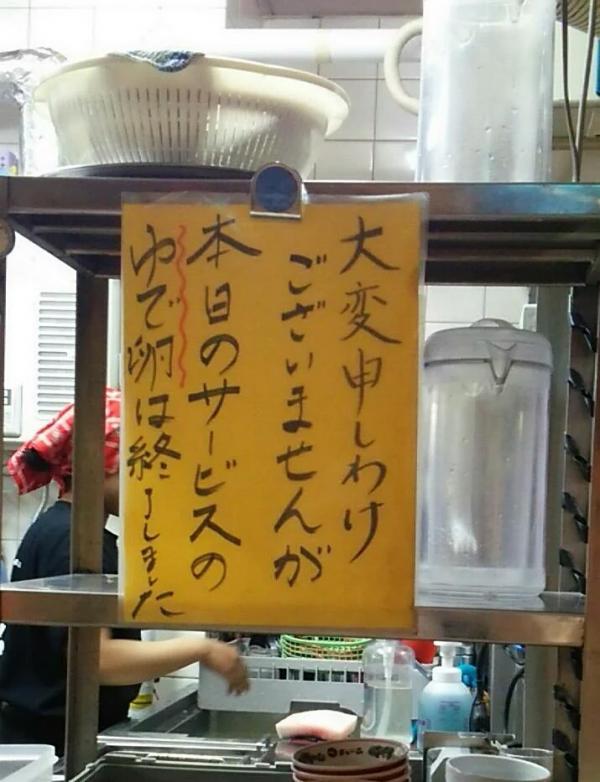 大変申しわけ
ございませんが
本日のサービスの
ゆで卵は終了しました